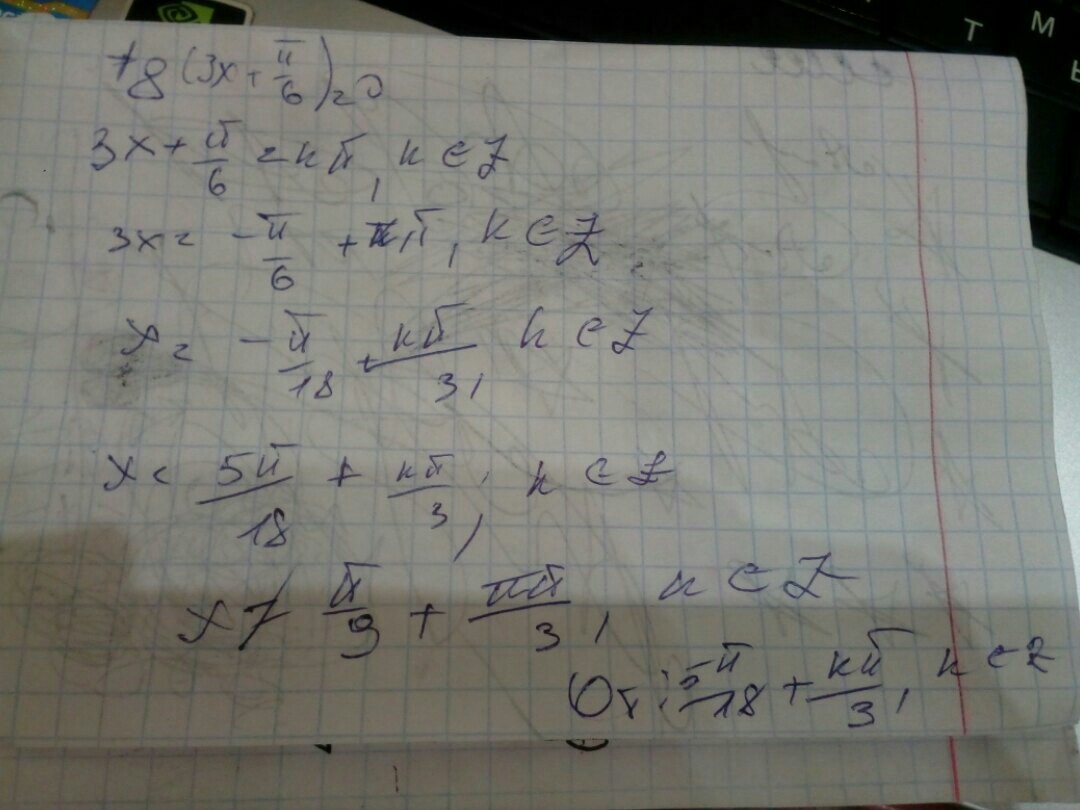 tg(3x+π/6)=0
3x+π/6=kπ, k∈Z
3x=-π/6+kπ, k∈Z
x=-π/18+kπ/3, k∈Z
x=5π/18+kπ/3, k∈Z
x≠π/9+kπ/3, k∈Z
От: 5π/18+kπ/3, k∈Z
Т
М